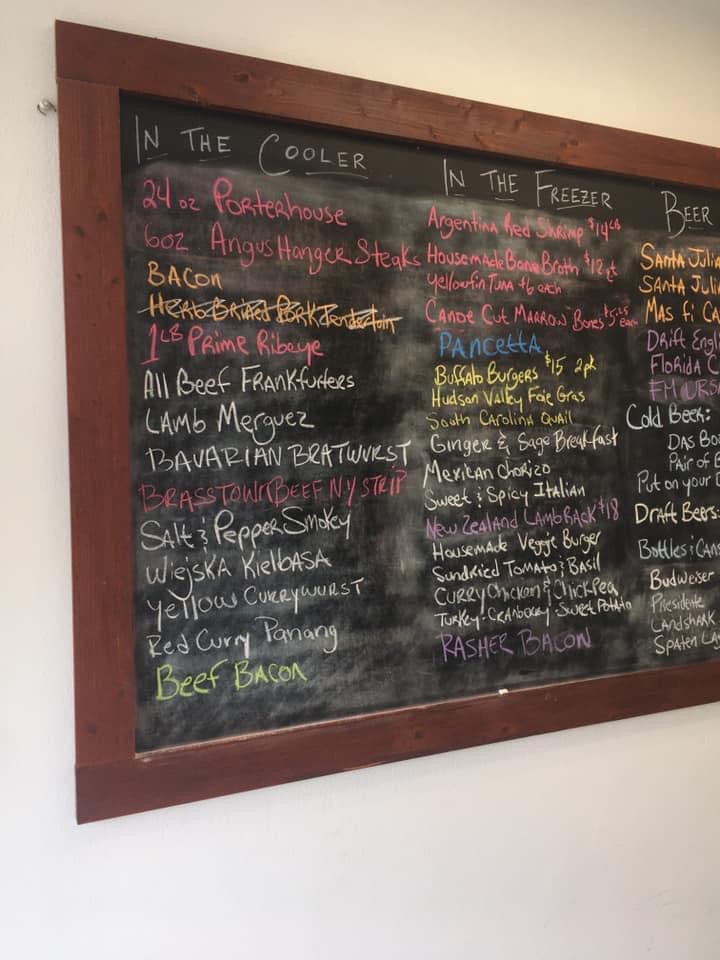 IN THE COOLER
24 oz Porterhouse
6oz. Angus Hanger Steaks
BACON
Herb Brined Pork Tenderloin
1LB Prime Ribeye
All Beef Frankfurters
Lamb Merguez
BAVARIAN BRATWURST
BRASSTOWN BEEF NY STRIP
Salt & Pepper Smokey
Wiejska Kielbasa
Yellow Currywurst
Red Curry Panang
Beef Bacon
IN THE FREEZER
Argentina Red Shrimp $14 LB
Housemade Bone Broth $12 qt
Yellowfin Tuna $6 each
Canoe Cut Marrow Bones $5.25 each
Pancetta
Buffalo Burgers $15 2pk
Hudson Valley Foie Gras
South Carolina Quail
Ginger & Sage Breakfast
Mexican Chorizo
Sweet & Spicy Italian
New Zealand Lamb Rack $18
Housemade Veggie Burger
Sundried Tomato & Basil
Curry Chicken & Chickpea
Turkey-Cranberry-Sweet Potato
RASHER BACON
BEER
Santa Julia
Santa Juli
Mas fi Ca
Drift Engl
Florida C
Cold Beer:
Das Bo
Pair of B
Put on your
Draft Beers:
Bottles & Cans
Budweiser
Presidente
Landshark
Spaten La